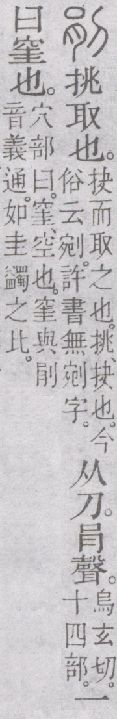 剈挑取也。抉而取之也。挑、抉也。今俗云剜。許書無剜字。从刀。肙聲。烏玄切。十四部。一
曰窐也。穴部曰。窐、空也。窐與剈音義通。如圭蠲之比。